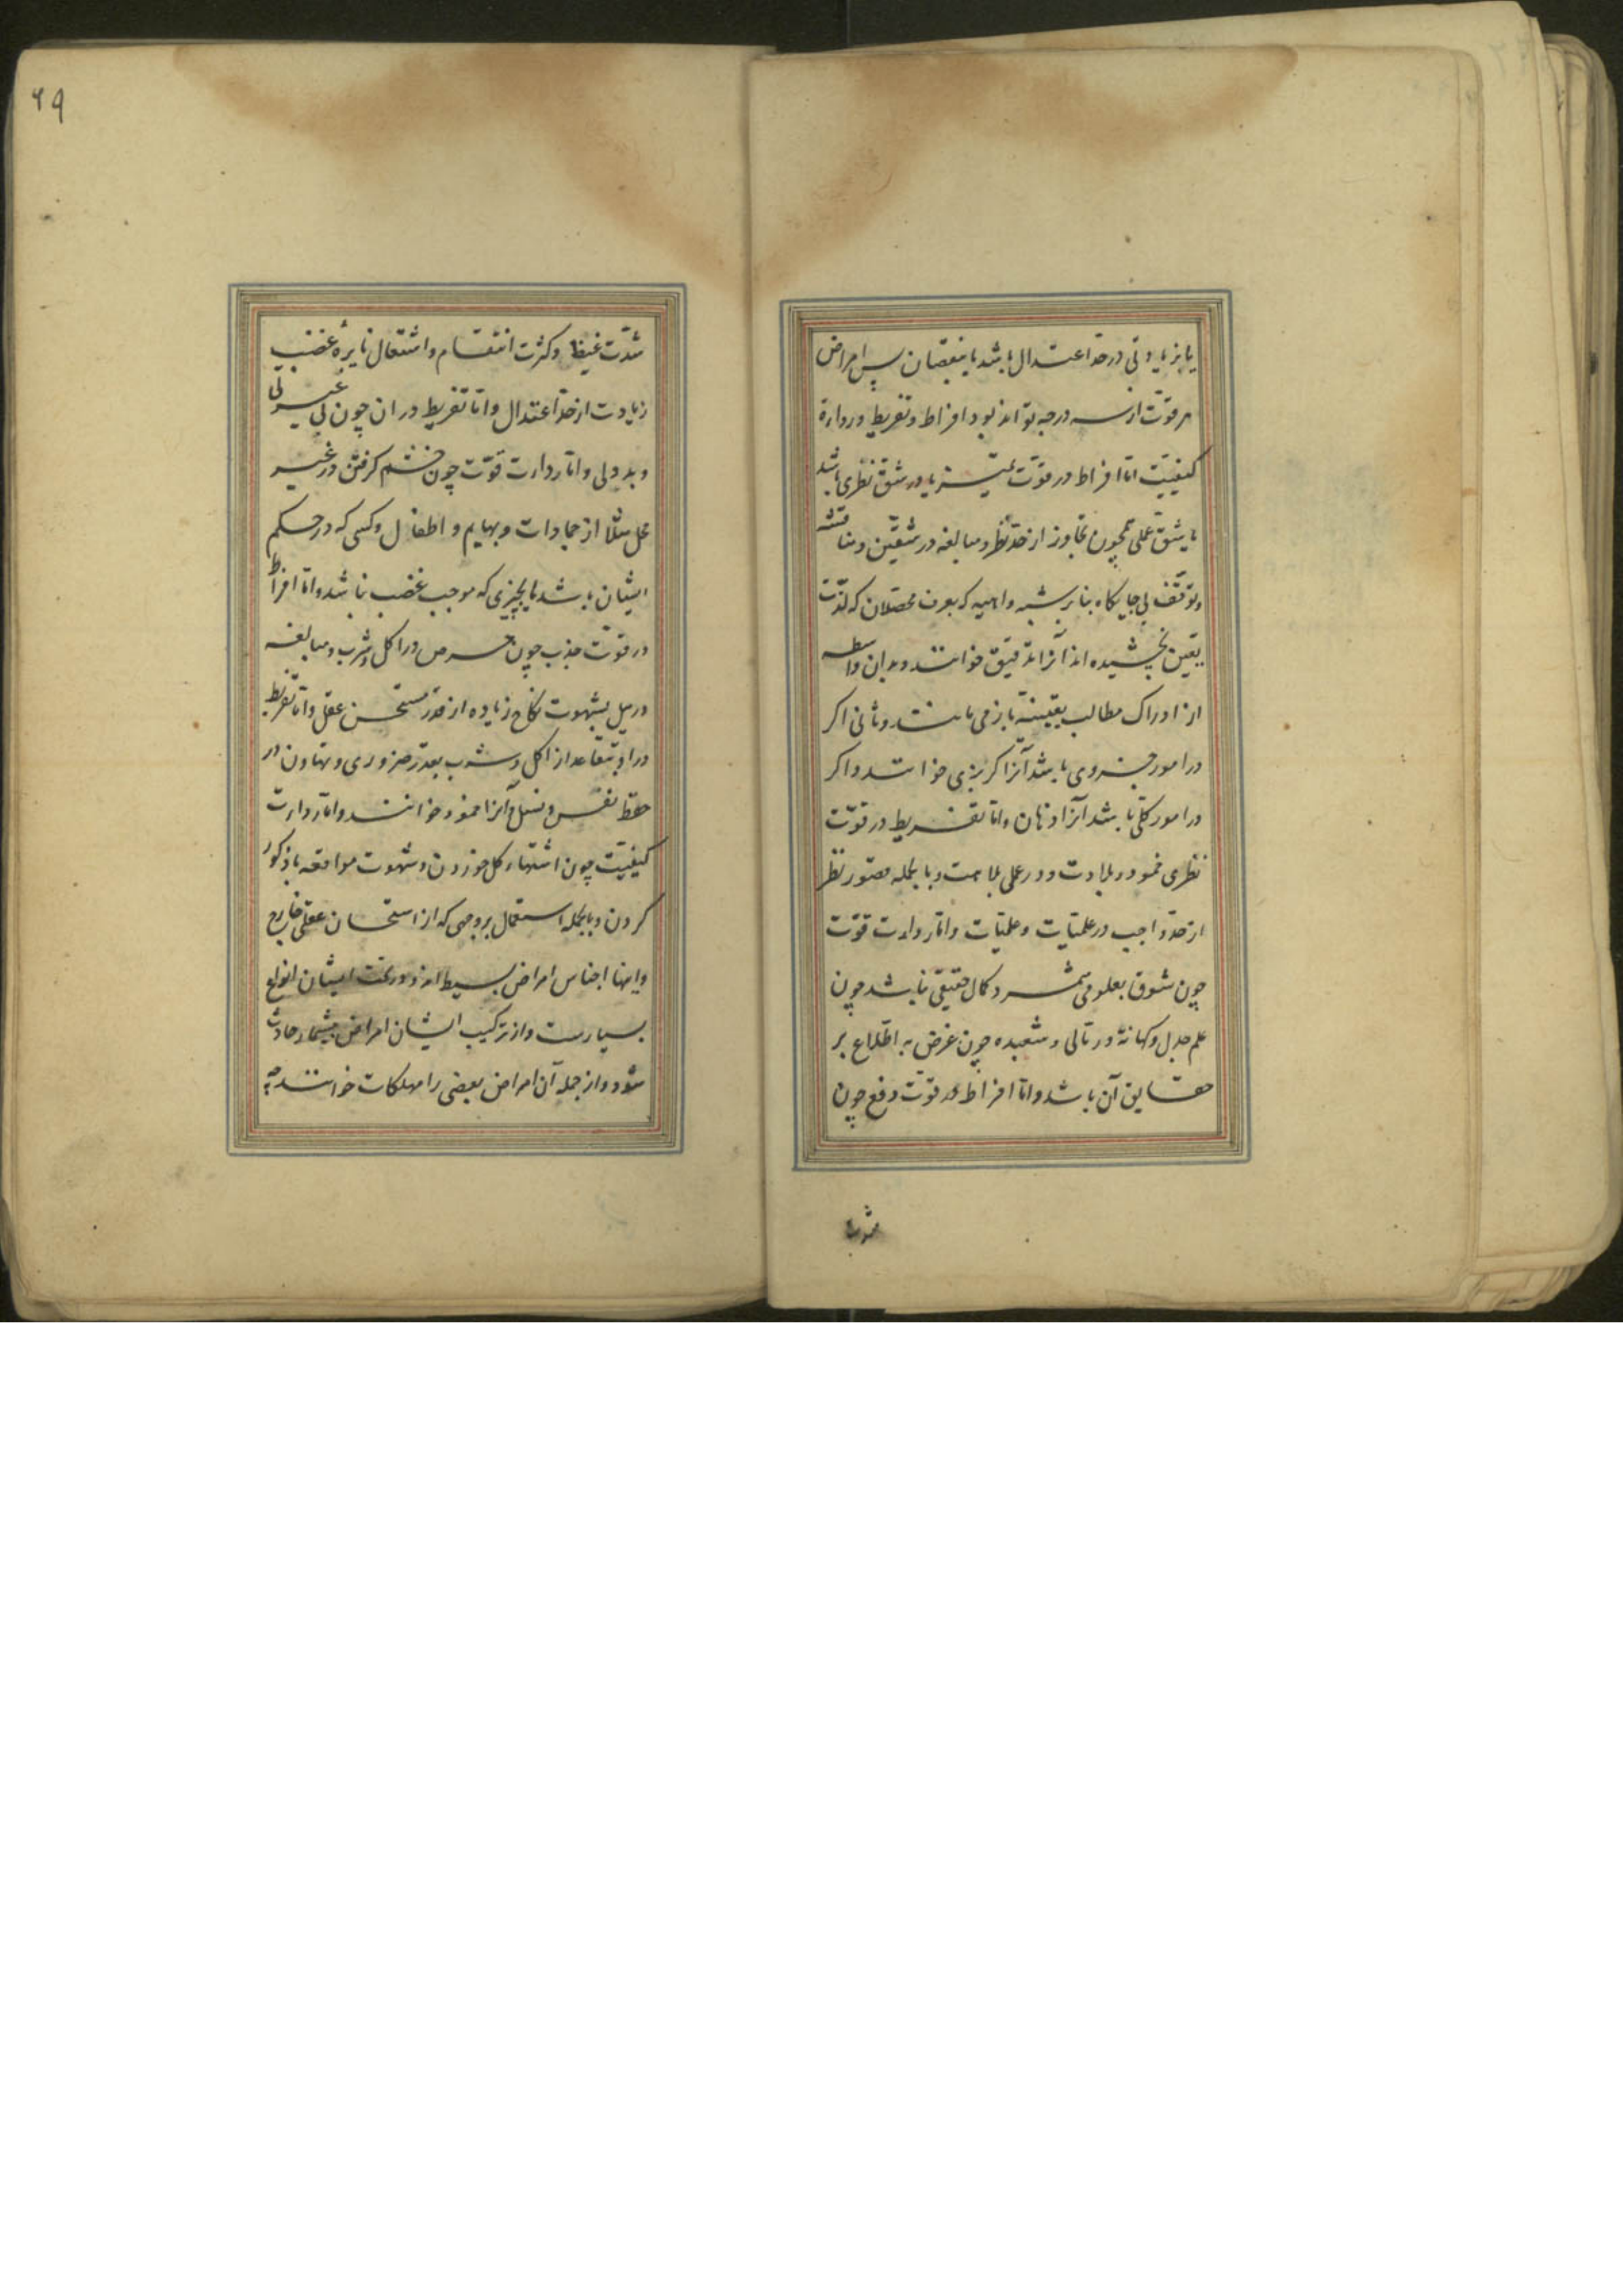 یا بزیادتی در حد اعتدال باشد یا بنقصان پس امراض
هر قوت از سه درجه تواند بود افراط و تفریط و رداءة
کیفیّت امّا افراط در قوّت تمییز یا در شقّ نظری باشد
یا شقّ عملی همچون تجاوز از حدّ نظر و مبالغه در شقّین و مناقشه
و توقّف بی جایگاه بنا بر شبه واهیه که بعرف محصّلان که لذّت
یقین نچشیده اند آنرا تدقیق خوانند و بدان واسطه
از ادراک مطالب یقینیّه باز می مانند و ثانی اکر
در امور جزوی باشد آنرا کربزی خوانند و اکر
در امور کلّی باشد آنرا دهان و امّا تفریط در قوّت
نظری خمود و بلادت و در عملی بلاهت و بالجمله قصور نظر
از حدّ واجب در علمیّات و عملیّات و امّا رداءت قوّت
چون شوق بعلومی که مثمر کمال حقیقی نباشد چون
علم جدل و کهانة و رمّالی و شعبده چون غرض نه اطّلاع بر
حقایق آن باشد و امّا افراط در قوّت دفع چون
شدّت
۶۹
شدّت غیظ و کثرت انتقام و اشتعال نایرهٔ غضب
زیادت از حدّ اعتدال و امّا تفریط در ان چون بی غیرتی
و بددلی و امّا رداءت قوّت چون خشم کرفتن در غیر
محل مثلا از جمادات و بهایم و اطفال و کسی که در حکم
ایشان باشد یا بچیزی که موجب غضب نباشد و امّا افراط
در قوّت جذب چون حرص در اکل و شرب و مبالغه
در میل بشهوت نکاح زیاده از قدر مستحسن عقل و امّا تفریط
در او تقاعد از اکل و شرب بقدر ضروری و تهاون در
حفظ نفس و نسل و آنرا خمود خوانند و امّا رداءت
کیفیّت چون اشتهاء کل خوردن و شهوت مواقعه با ذکور
کردن و بالجمله استعمال بر وجهی که از استحسان عقلی خارج
و اینها اجناس امراض بسیط اند و در تحت ایشان انواع
بسیارست و از ترکیب ایشان امراض بیشمار حادث
شود و از جمله آن امراض بعضی را مهلکات خوانند چه